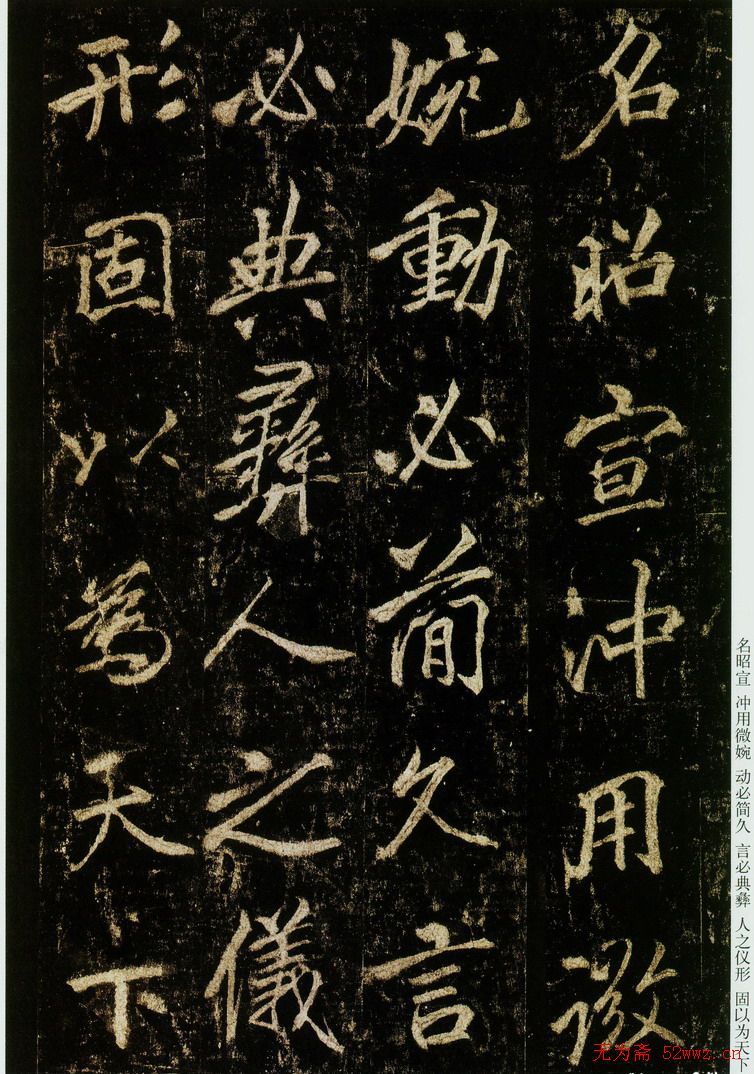 名昭宣冲用微
婉動必簡久言
必典彝人之儀
形固以為天下
名昭宣 冲用微婉 动必简久 言必典彝 人之仪形 固以为天下
无为斋 52wwz.cn